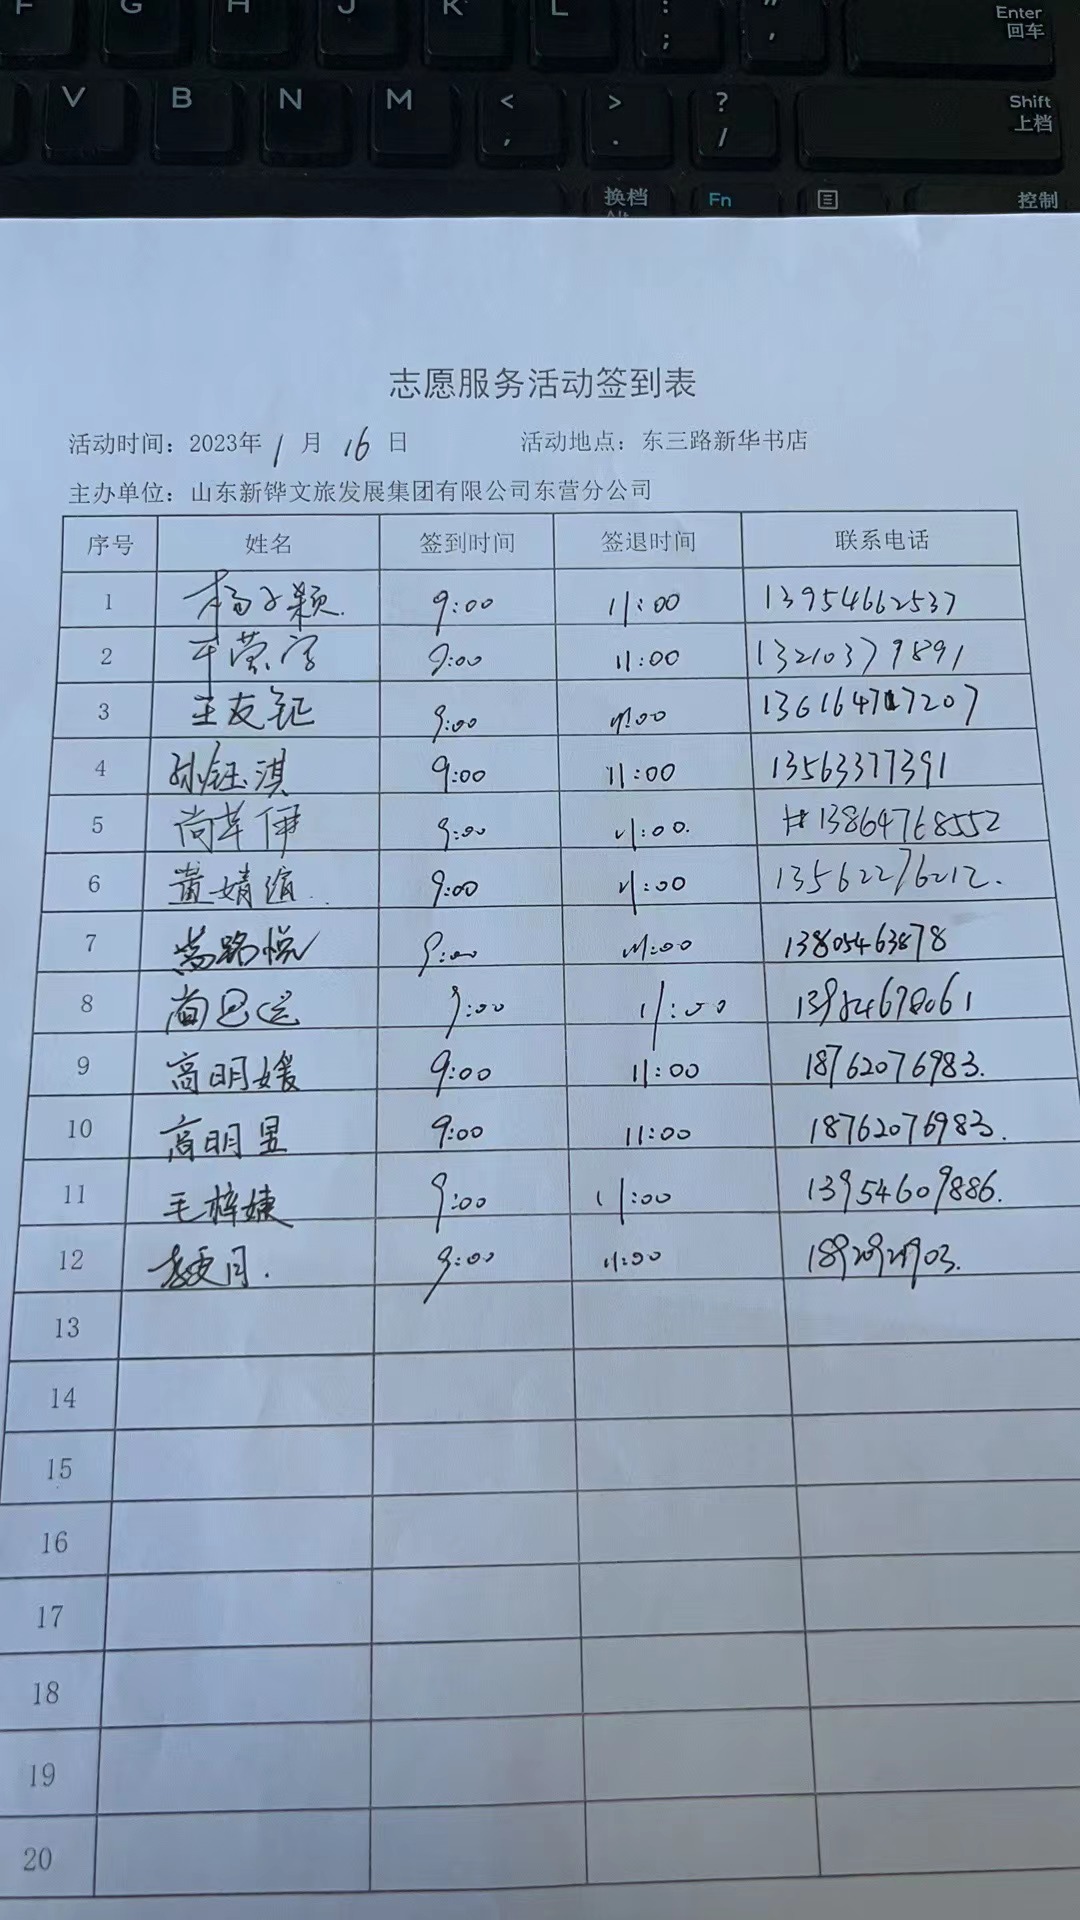 F G H J K L : ; " , Enter 回车
V B N M < , > . ? / Shift 上档
换档 Alt Fn 控制
志愿服务活动签到表
活动时间：2023年 1 月 16 日 活动地点：东三路新华书店
主办单位：山东新铧文旅发展集团有限公司东营分公司
序号 姓名 签到时间 签退时间 联系电话
1 杨子颖. 9:00 11:00 13954662537
2 9:00 11:00 13210379891
3 王友钲 9:00 11:00
4 孙钰淇 9:00 11:00 13563377391
5 尚芊伊 9:00 11:00. 13864768552
6 董婧 9:00 11:00 13562276212.
7 路悦 9:00 11:00 13805463878
8 尚 9:00 11:00
9 高明媛 9:00 11:00 18762076983.
10 高明昱 9:00 11:00 18762076983.
11 毛梓婕 9:00 11:00 13954609886.
12 9:00 11:00
13
14
15
16
17
18
19
20